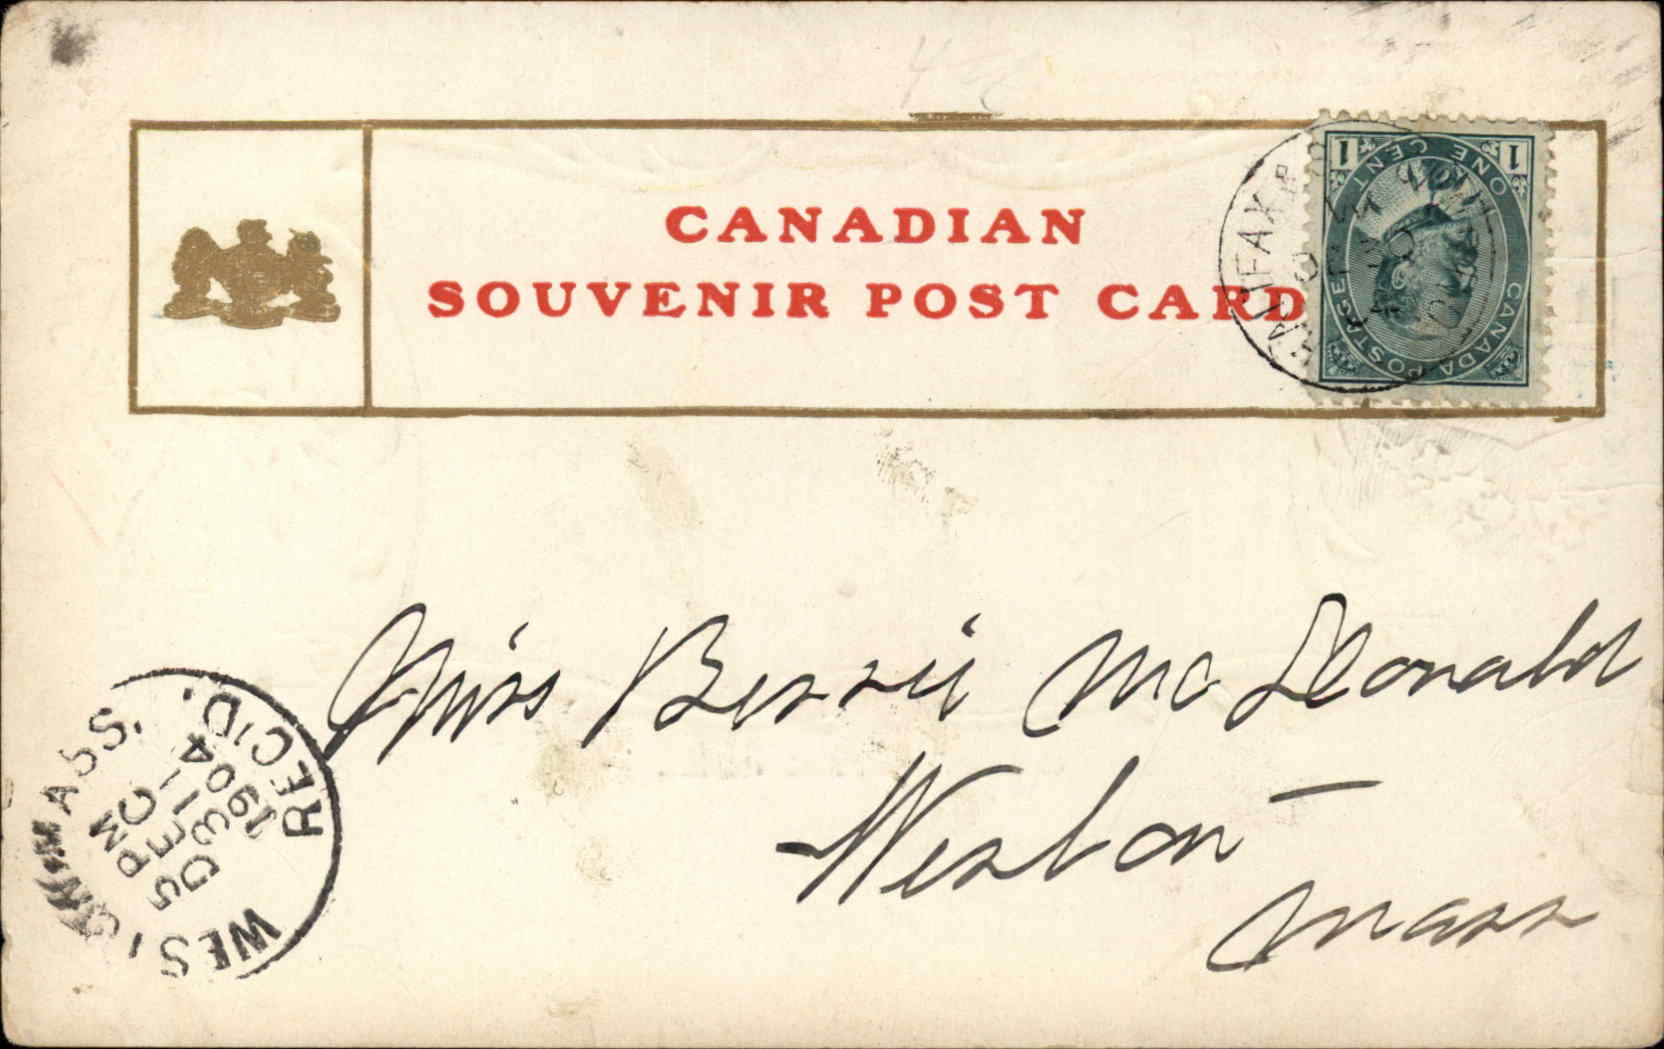 CANADIAN
SOUVENIR POST CARD
1 ONE CENT 1
CANADA POSTAGE
HALIFAX
Miss Bessie McDonald
Weston
Mass
WESTON. MASS.
5 PM
DEC 31
1904
REC'D.